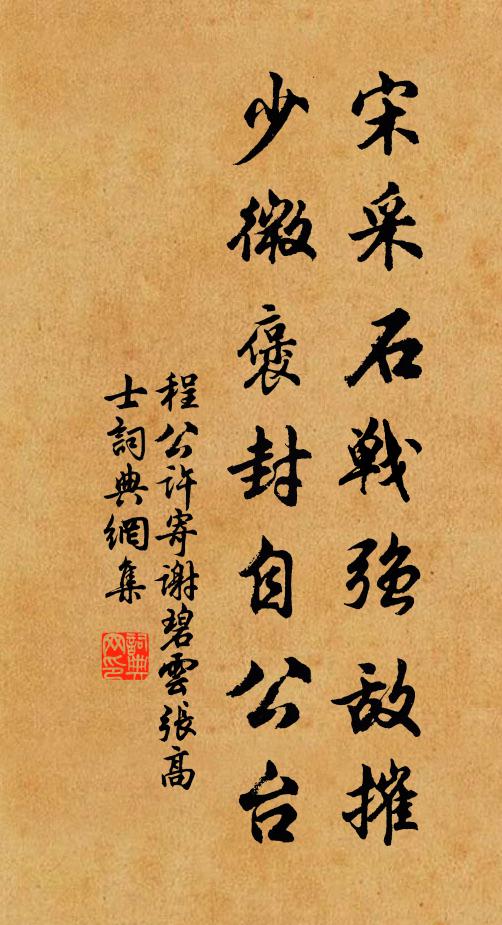 宋采石戰強敵摧
少微褒封自公台
程公許寄謝碧雲張高
士詞典網集
詞典網印